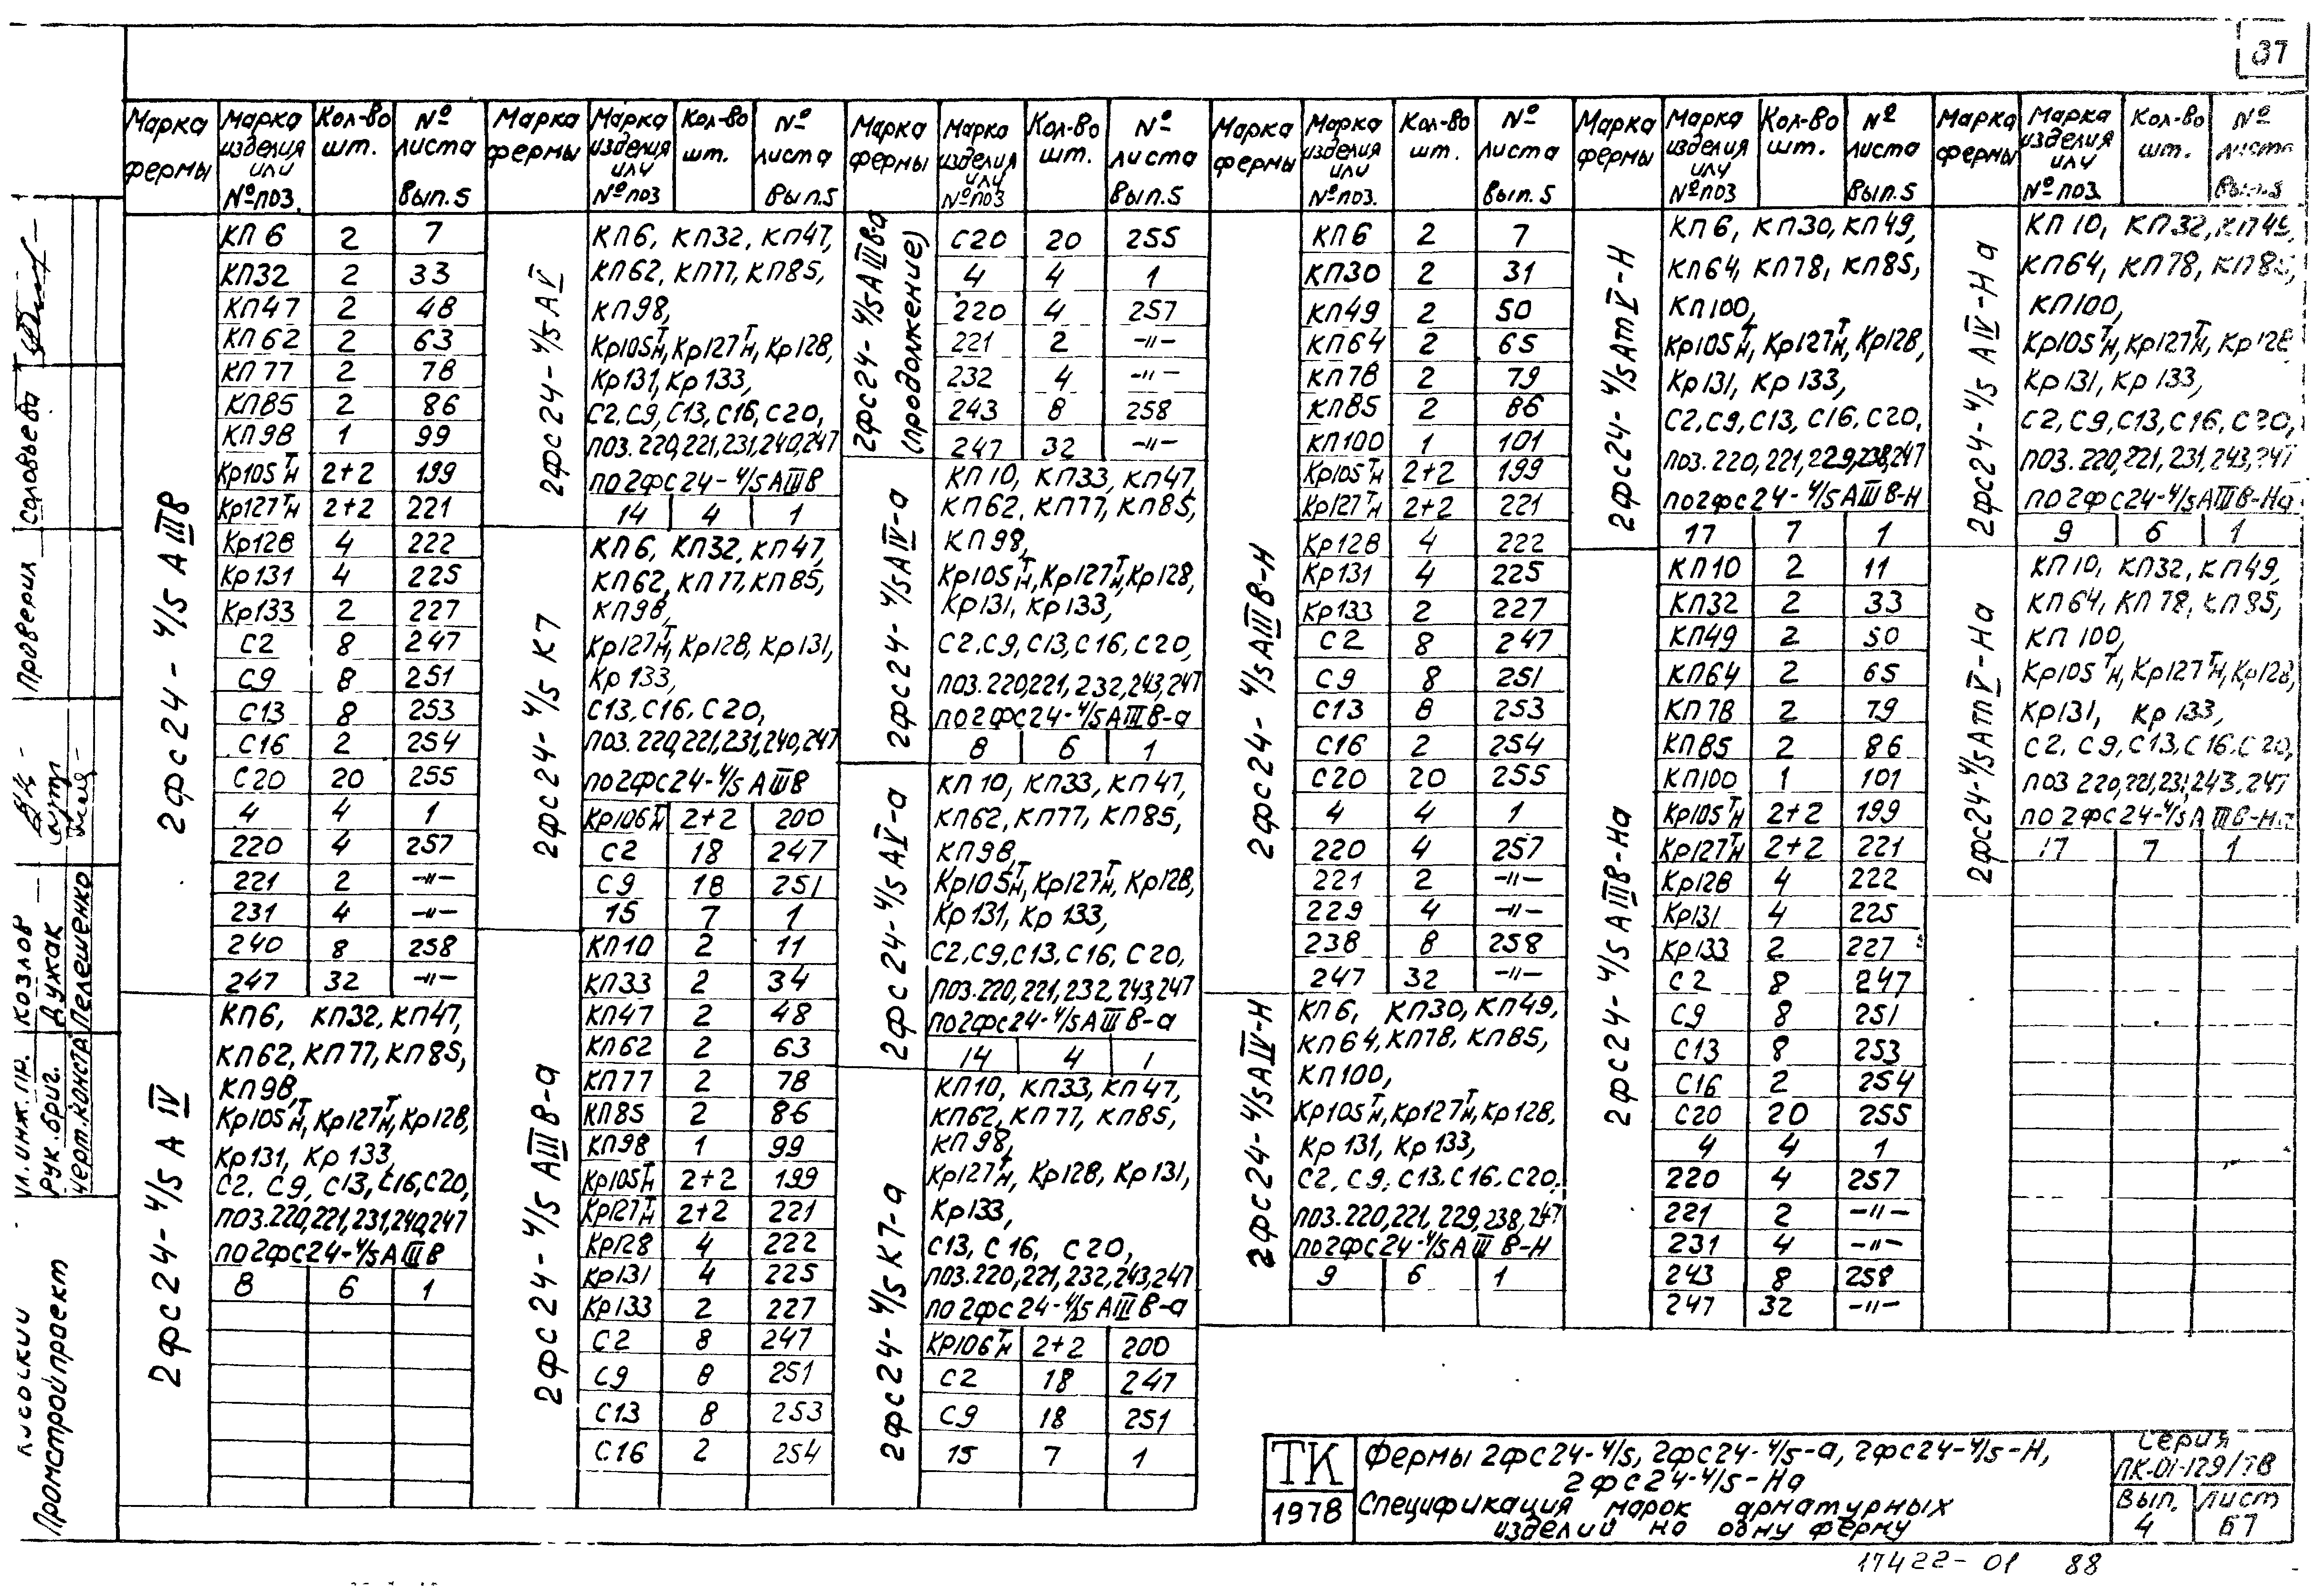 87
Марка фермы | Марка изделия или № поз. | Кол-во шт. | № листа Вып. 5
2ФС24-4/5 АIIIВ
КП6 2 7
КП32 2 33
КП47 2 48
КП62 2 63
КП77 2 78
КП85 2 86
КП98 1 99
Кр105 т/н 2+2 199
Кр127 т/н 2+2 221
Кр128 4 222
Кр131 4 225
Кр133 2 227
С2 8 247
С9 8 251
С13 8 253
С16 2 254
С20 20 255
4 4 1
220 4 257
221 2 -"-
231 4 -"-
240 8 258
247 32 -"-
2ФС24-4/5 АIV
КП6, КП32, КП47,
КП62, КП77, КП85,
КП98,
Кр105 т/н, Кр127 т/н, Кр128,
Кр131, Кр133,
С2, С9, С13, С16, С20,
поз. 220, 221, 231, 240, 247
по 2ФС24-4/5 АIIIВ
8 6 1
Марка фермы | Марка изделия или № поз | Кол-во шт. | № листа Вып. 5
2ФС24-4/5 АV
КП6, КП32, КП47,
КП62, КП77, КП85,
КП98,
Кр105 т/н, Кр127 т/н, Кр128,
Кр131, Кр133,
С2, С9, С13, С16, С20,
поз. 220, 221, 231, 240, 247
по 2ФС24-4/5 АIIIВ
14 4 1
2ФС24-4/5 К7
КП6, КП32, КП47,
КП62, КП77, КП85,
КП98,
Кр127 т/н, Кр128, Кр131,
Кр133,
С13, С16, С20,
поз. 220, 221, 231, 240, 247
по 2ФС24-4/5 АIIIВ
Кр106 т/н 2+2 200
С2 18 247
С9 18 251
15 7 1
2ФС24-4/5 АIIIВ-а
КП10 2 11
КП33 2 34
КП47 2 48
КП62 2 63
КП77 2 78
КП85 2 86
КП98 1 99
Кр105 т/н 2+2 199
Кр127 т/н 2+2 221
Кр128 4 222
Кр131 4 225
Кр133 2 227
С2 8 247
С9 8 251
С13 8 253
С16 2 254
Марка фермы | Марка изделия или № поз | Кол-во шт. | № листа Вып. 5
2ФС24-4/5 АIIIВ-а (продолжение)
С20 20 255
4 4 1
220 4 257
221 2 -"-
232 4 -"-
243 8 258
247 32 -"-
2ФС24-4/5 АIV-а
КП10, КП33, КП47,
КП62, КП77, КП85,
КП98,
Кр105 т/н, Кр127 т/н, Кр128,
Кр131, Кр133,
С2, С9, С13, С16, С20,
поз. 220, 221, 232, 243, 247
по 2ФС24-4/5 АIIIВ-а
8 6 1
2ФС24-4/5 АV-а
КП10, КП33, КП47,
КП62, КП77, КП85,
КП98,
Кр105 т/н, Кр127 т/н, Кр128,
Кр131, Кр133,
С2, С9, С13, С16, С20,
поз. 220, 221, 232, 243, 247
по 2ФС24-4/5 АIIIВ-а
14 4 1
2ФС24-4/5 К7-а
КП10, КП33, КП47,
КП62, КП77, КП85,
КП98,
Кр127 т/н, Кр128, Кр131,
Кр133,
С13, С16, С20,
поз. 220, 221, 232, 243, 247
по 2ФС24-4/5 АIIIВ-а
Кр106 т/н 2+2 200
С2 18 247
С9 18 251
15 7 1
Марка фермы | Марка изделия или № поз. | Кол-во шт. | № листа Вып. 5
2ФС24-4/5 АIIIВ-Н
КП6 2 7
КП30 2 31
КП49 2 50
КП64 2 65
КП78 2 79
КП85 2 86
КП100 1 101
Кр105 т/н 2+2 199
Кр127 т/н 2+2 221
Кр128 4 222
Кр131 4 225
Кр133 2 227
С2 8 247
С9 8 251
С13 8 253
С16 2 254
С20 20 255
4 4 1
220 4 257
221 2 -"-
229 4 -"-
238 8 258
247 32 -"-
2ФС24-4/5 АIV-Н
КП6, КП30, КП49,
КП64, КП78, КП85,
КП100,
Кр105 т/н, Кр127 т/н, Кр128,
Кр131, Кр133,
С2, С9, С13, С16, С20,
поз. 220, 221, 229, 238, 247
по 2ФС24-4/5 АIIIВ-Н
9 6 1
Марка фермы | Марка изделия или № поз | Кол-во шт. | № листа Вып. 5
2ФС24-4/5 АтV-Н
КП6, КП30, КП49,
КП64, КП78, КП85,
КП100,
Кр105 т/н, Кр127 т/н, Кр128,
Кр131, Кр133,
С2, С9, С13, С16, С20,
поз. 220, 221, 229, 238, 247
по 2ФС24-4/5 АIIIВ-Н
17 7 1
2ФС24-4/5 АIIIВ-На
КП10 2 11
КП32 2 33
КП49 2 50
КП64 2 65
КП78 2 79
КП85 2 86
КП100 1 101
Кр105 т/н 2+2 199
Кр127 т/н 2+2 221
Кр128 4 222
Кр131 4 225
Кр133 2 227
С2 8 247
С9 8 251
С13 8 253
С16 2 254
С20 20 255
4 4 1
220 4 257
221 2 -"-
231 4 -"-
243 8 258
247 32 -"-
Марка фермы | Марка изделия или № поз. | Кол-во шт. | № листа Вып. 5
2ФС24-4/5 АIV-На
КП10, КП32, КП49,
КП64, КП78, КП85,
КП100,
Кр105 т/н, Кр127 т/н, Кр128
Кр131, Кр133,
С2, С9, С13, С16, С20,
поз. 220, 221, 231, 243, 247
по 2ФС24-4/5 АIIIВ-На
9 6 1
2ФС24-4/5 АтV-На
КП10, КП32, КП49,
КП64, КП78, КП85,
КП100,
Кр105 т/н, Кр127 т/н, Кр128,
Кр131, Кр133,
С2, С9, С13, С16, С20,
поз. 220, 221, 231, 243, 247
по 2ФС24-4/5 АIIIВ-На
17 7 1
Проверил Соловьева
Гл. инж. пр. Козлов
Рук. бриг. Дужак
Черт. конст. Пелешенко
Промстройпроект
ТК
1978
Фермы 2ФС24-4/5, 2ФС24-4/5-а, 2ФС24-4/5-Н,
2ФС24-4/5-На
Спецификация марок арматурных
изделий на одну ферму
Серия
ПК-01-129/78
Вып. 4
Лист 67
17422-01 88